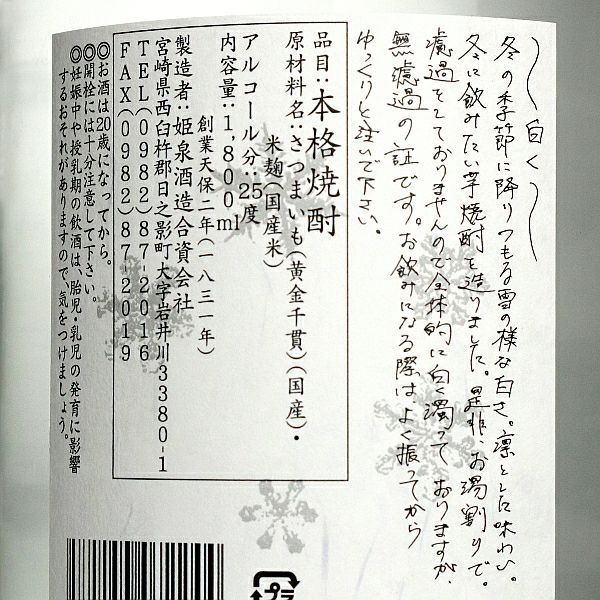 〜白く〜
冬の季節に降りつもる雪の様な白さ。凛とした味わい。
冬に飲みたい芋焼酎を造りました。是非、お湯割りで。
濾過をしておりませんので全体的に白く濁っておりますが、
無濾過の証です。お飲みになる際は、よく振ってから
ゆっくりと注いで下さい。
品目：本格焼酎
原材料名：さつまいも（黄金千貫）（国産）・
米麹（国産米）
アルコール分：25度
内容量：1,800ml
創業天保二年（一八三一年）
製造者：姫泉酒造合資会社
宮崎県西臼杵郡日之影町大字岩井川3380-1
TEL(0982)87-2016
FAX(0982)87-2019
◎お酒は20歳になってから。
◎開栓には十分注意して下さい。
◎妊娠中や授乳期の飲酒は、胎児・乳児の発育に影響
するおそれがありますので、気をつけましょう。
プラ